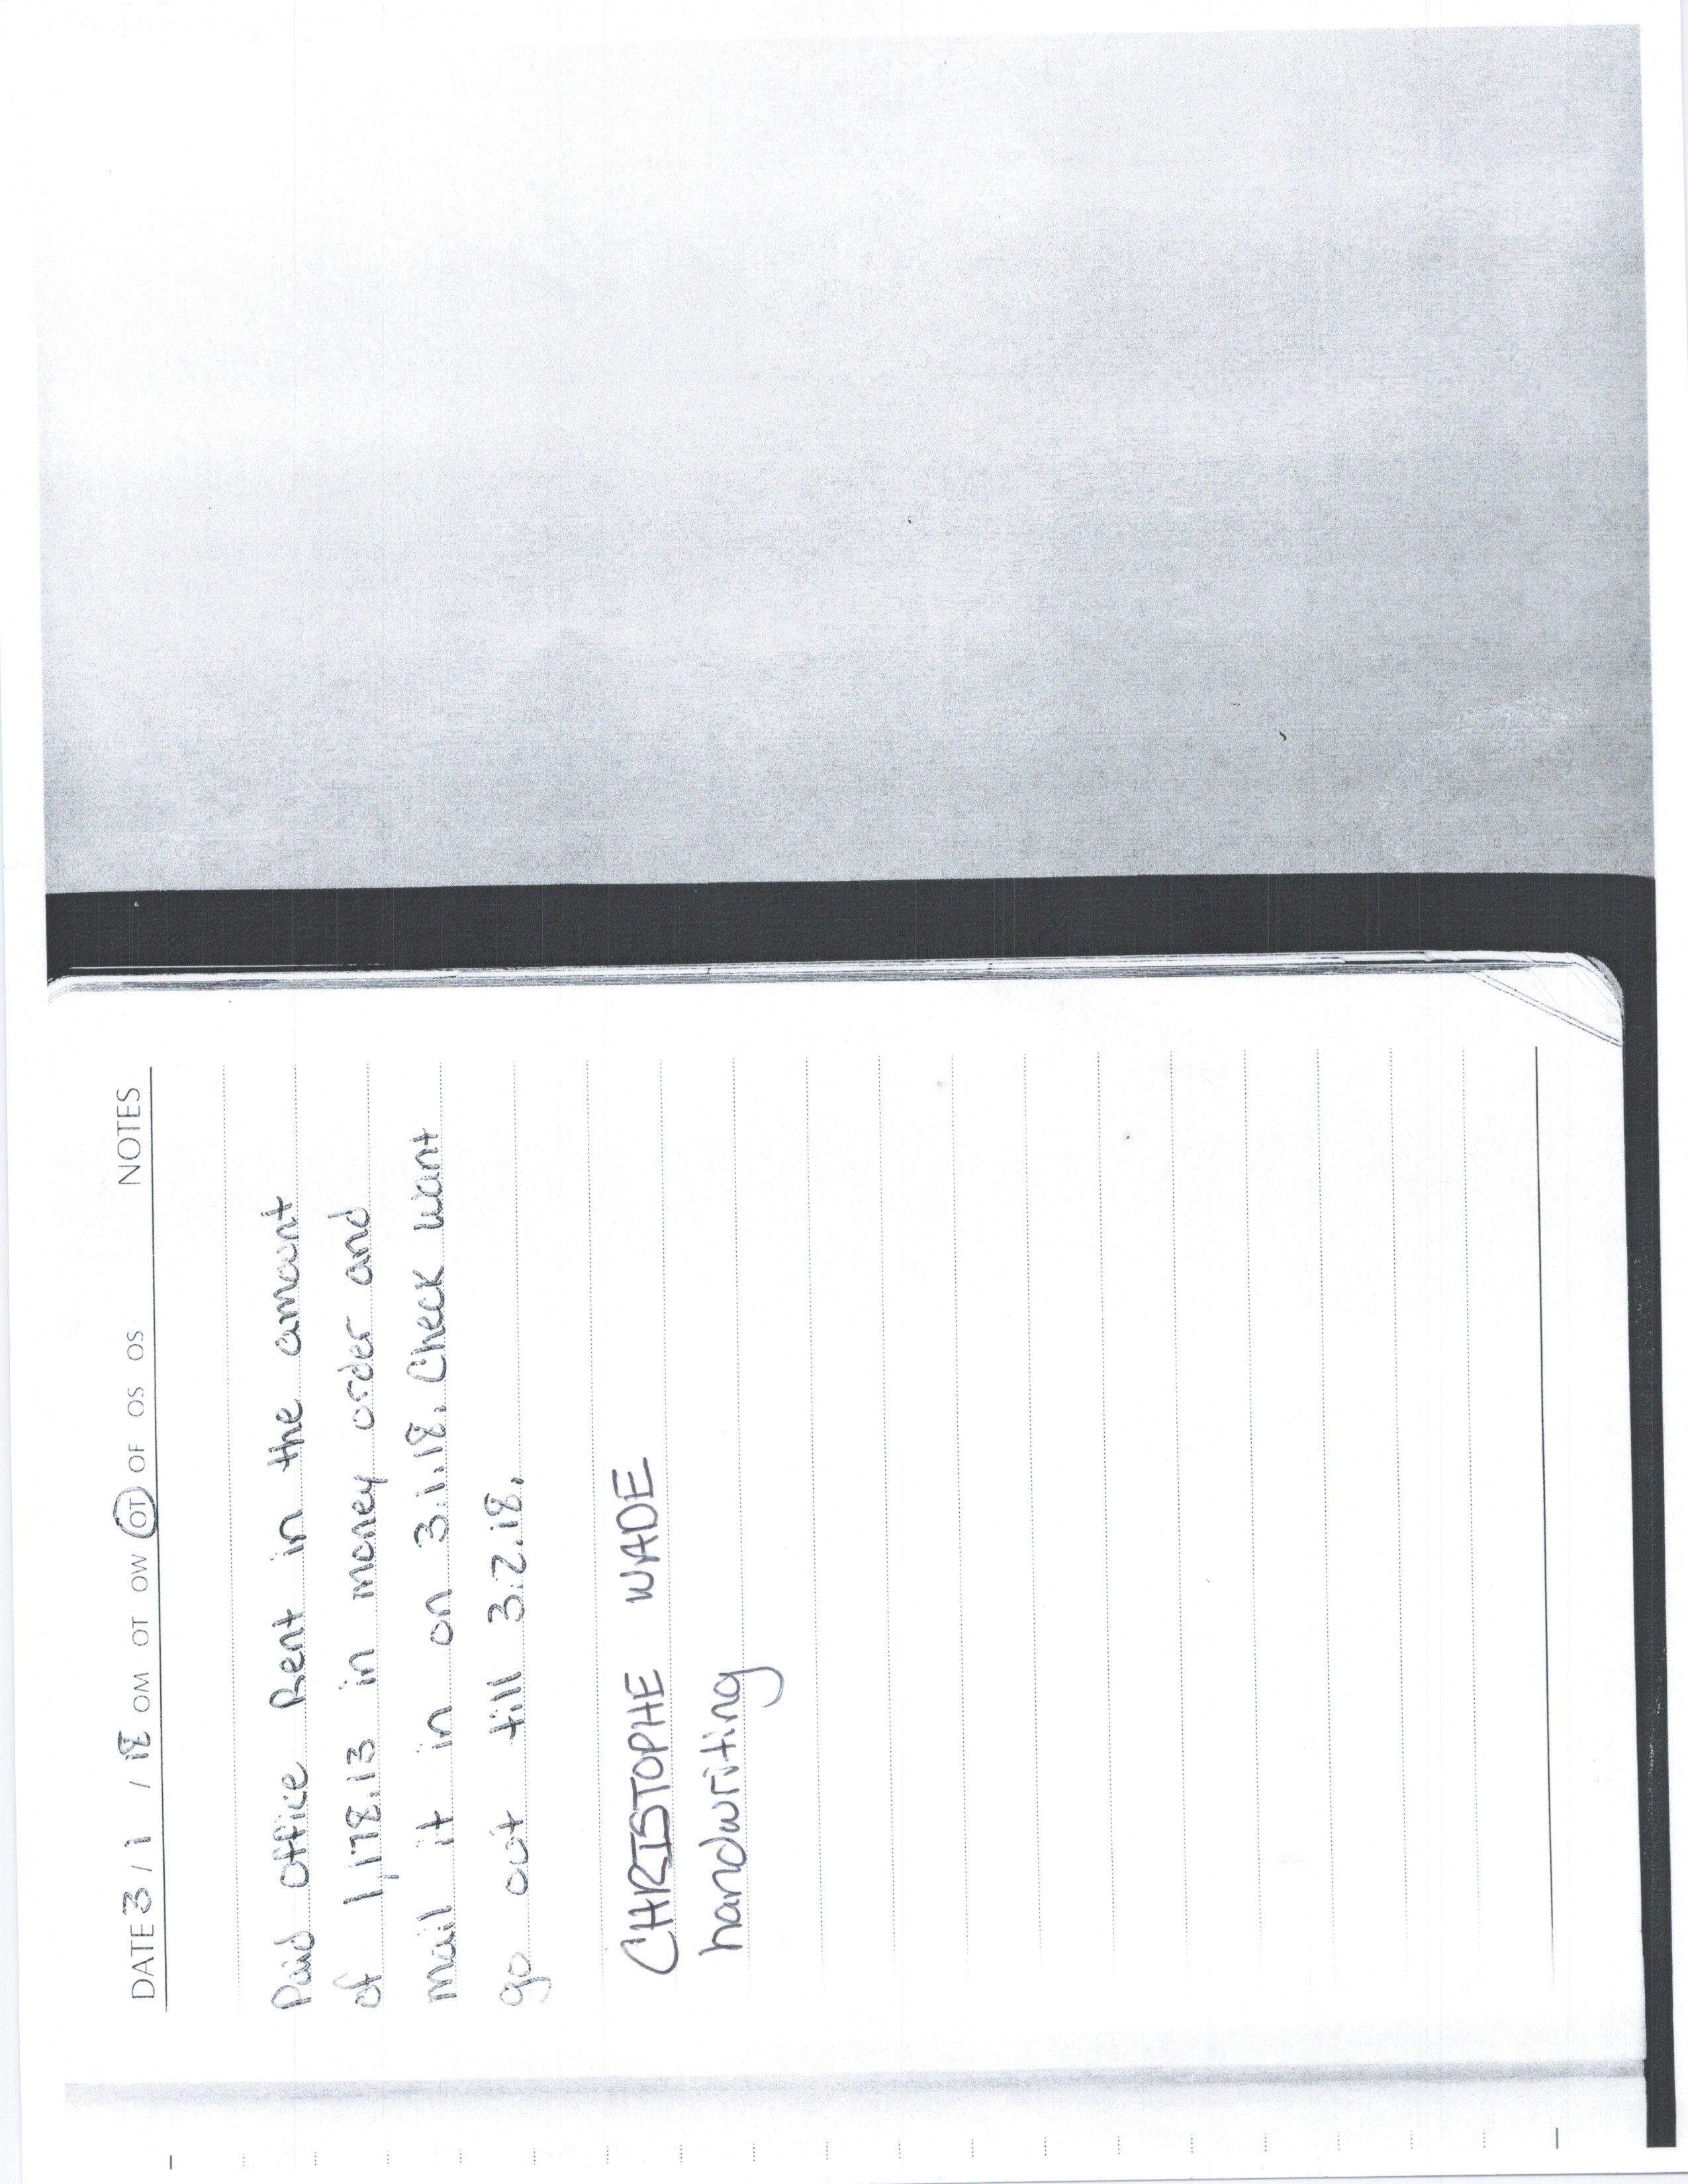 DATE 3 / 1 / 18 OM OT OW OT OF OS OS NOTES
Paid office Rent in the amount
of 1,178.13 in money order and
mail it in on 3.1.18. Check want
go out till 3.2.18.
CHRISTOPHE WADE
handwriting